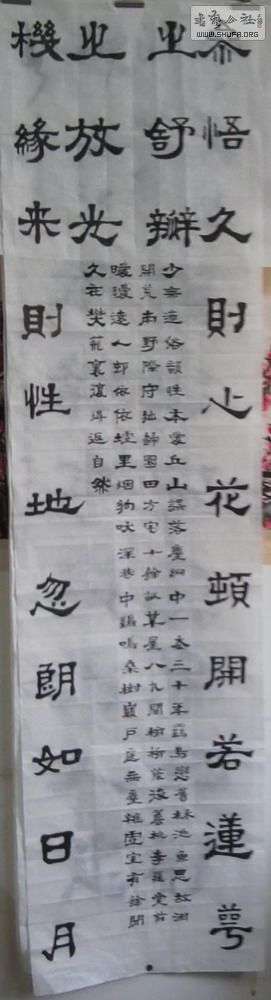 叅悟久則心花頓開若蓮萼
之舒瓣
機緣来則性地忽朗如日月
之放光
少無適俗韻性本愛丘山誤落塵网中一去三十年羈鳥戀舊林池魚思故淵
開荒南野際守拙歸園田方宅十餘畝草屋八九間榆柳蔭後簷桃李羅堂前
曖曖遠人邨依依墟里烟狗吠深巷中鷄鳴桑樹巔戶庭無塵雜虛室有餘閒
久在樊籠裏復得返自然
WWW.SHUFA.ORG